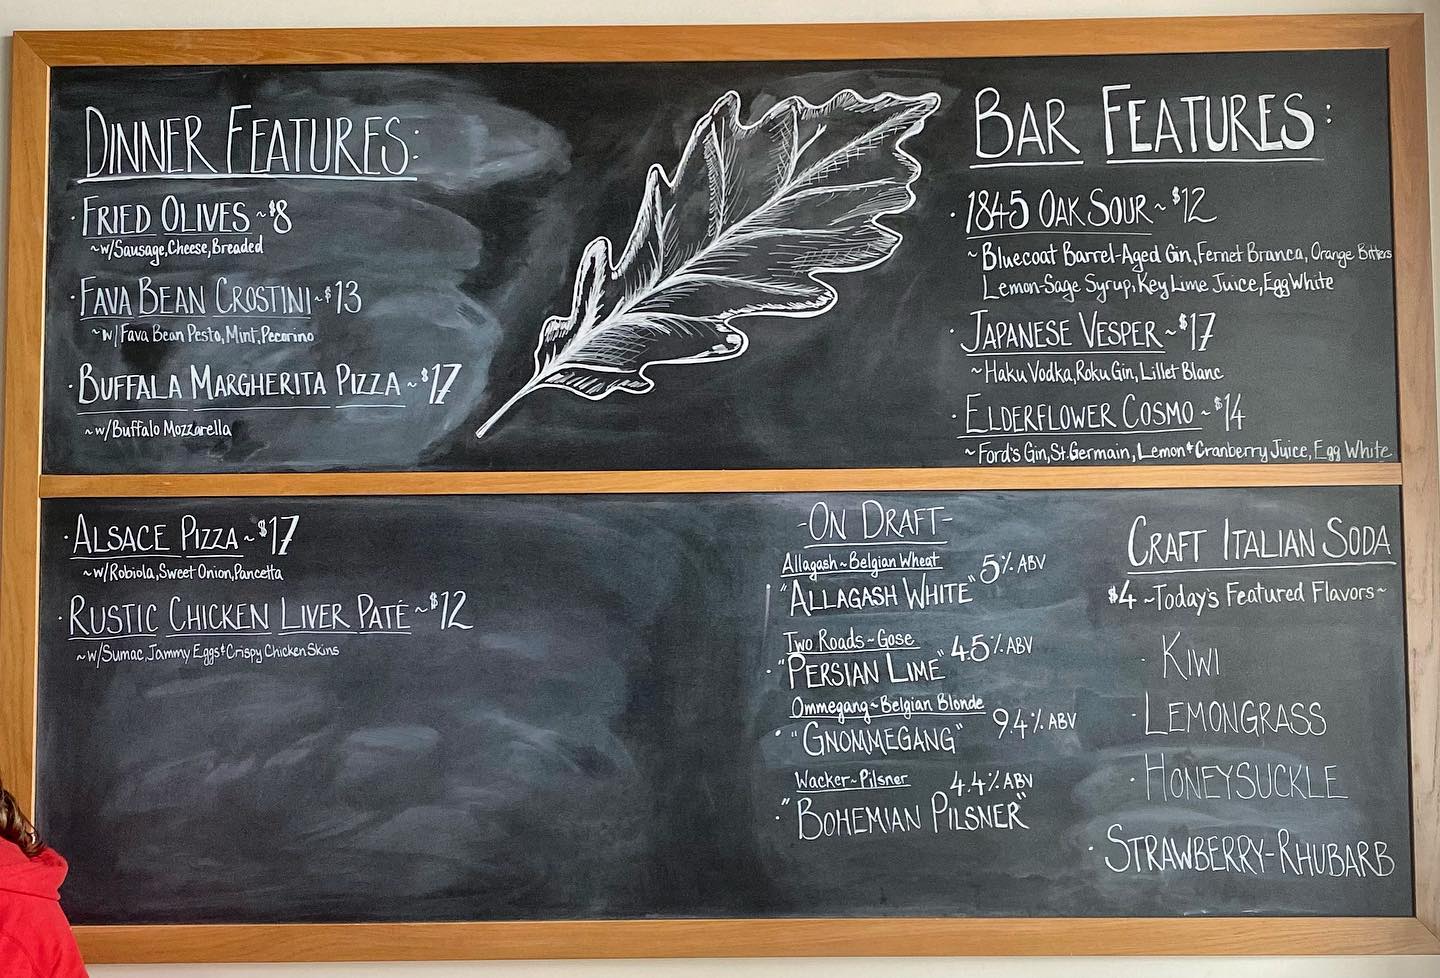 DINNER FEATURES:
· FRIED OLIVES ~ $8
~ w/Sausage, Cheese, Breaded
· FAVA BEAN CROSTINI ~ $13
~ w/ Fava Bean Pesto, Mint, Pecorino
· BUFFALA MARGHERITA PIZZA ~ $17
~ w/Buffalo Mozzarella
· ALSACE PIZZA ~ $17
~ w/Robiola, Sweet Onion, Pancetta
· RUSTIC CHICKEN LIVER PATÉ ~ $12
~ w/Sumac, Jammy Eggs + Crispy Chicken Skins
BAR FEATURES:
· 1845 OAK SOUR ~ $12
~ Bluecoat Barrel-Aged Gin, Fernet Branca, Orange Bitters
Lemon-Sage Syrup, Key Lime Juice, Egg White
· JAPANESE VESPER ~ $17
~ Haku Vodka, Roku Gin, Lillet Blanc
· ELDERFLOWER COSMO ~ $14
~ Ford's Gin, St. Germain, Lemon + Cranberry Juice, Egg White
-ON DRAFT-
Allagash ~ Belgian Wheat
· "ALLAGASH WHITE" 5% ABV
Two Roads ~ Gose
· "PERSIAN LIME" 4.5% ABV
Ommegang ~ Belgian Blonde
· "GNOMMEGANG" 9.4% ABV
Wacker ~ Pilsner 4.4% ABV
· "BOHEMIAN PILSNER"
CRAFT ITALIAN SODA
$4 ~ Today's Featured Flavors ~
· KIWI
· LEMONGRASS
· HONEYSUCKLE
· STRAWBERRY-RHUBARB